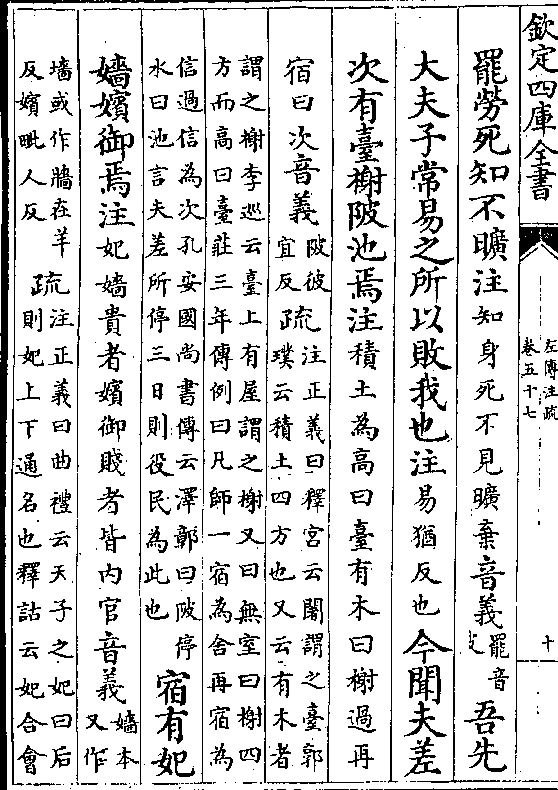 欽定四庫全書
左傳注疏
卷五十七
十
罷勞死知不曠注知身死不見曠棄音義罷音皮吾先
大夫子常易之所以敗我也注易猶反也今聞夫差
次有臺榭陂池焉注積土為高曰臺有木曰榭過再
宿曰次音義陂彼宜反疏注正義曰釋宮云闍謂之臺郭
璞云積土四方也又云有木者
謂之榭李巡云臺上有屋謂之榭又曰無室曰榭四
方而高曰臺莊三年傳例曰凡師一宿為舍再宿為
信過信為次孔安國尚書傳云澤鄣曰陂停
水曰池言夫差所停三日則役民為此也宿有妃
嬙嬪御焉注妃嬙貴者嬪御賤者皆內官音義嬙本又作
墻或作牆在羊反嬪毗人反疏注正義曰曲禮云天子之妃曰后
則妃上下通名也釋詁云妃合會